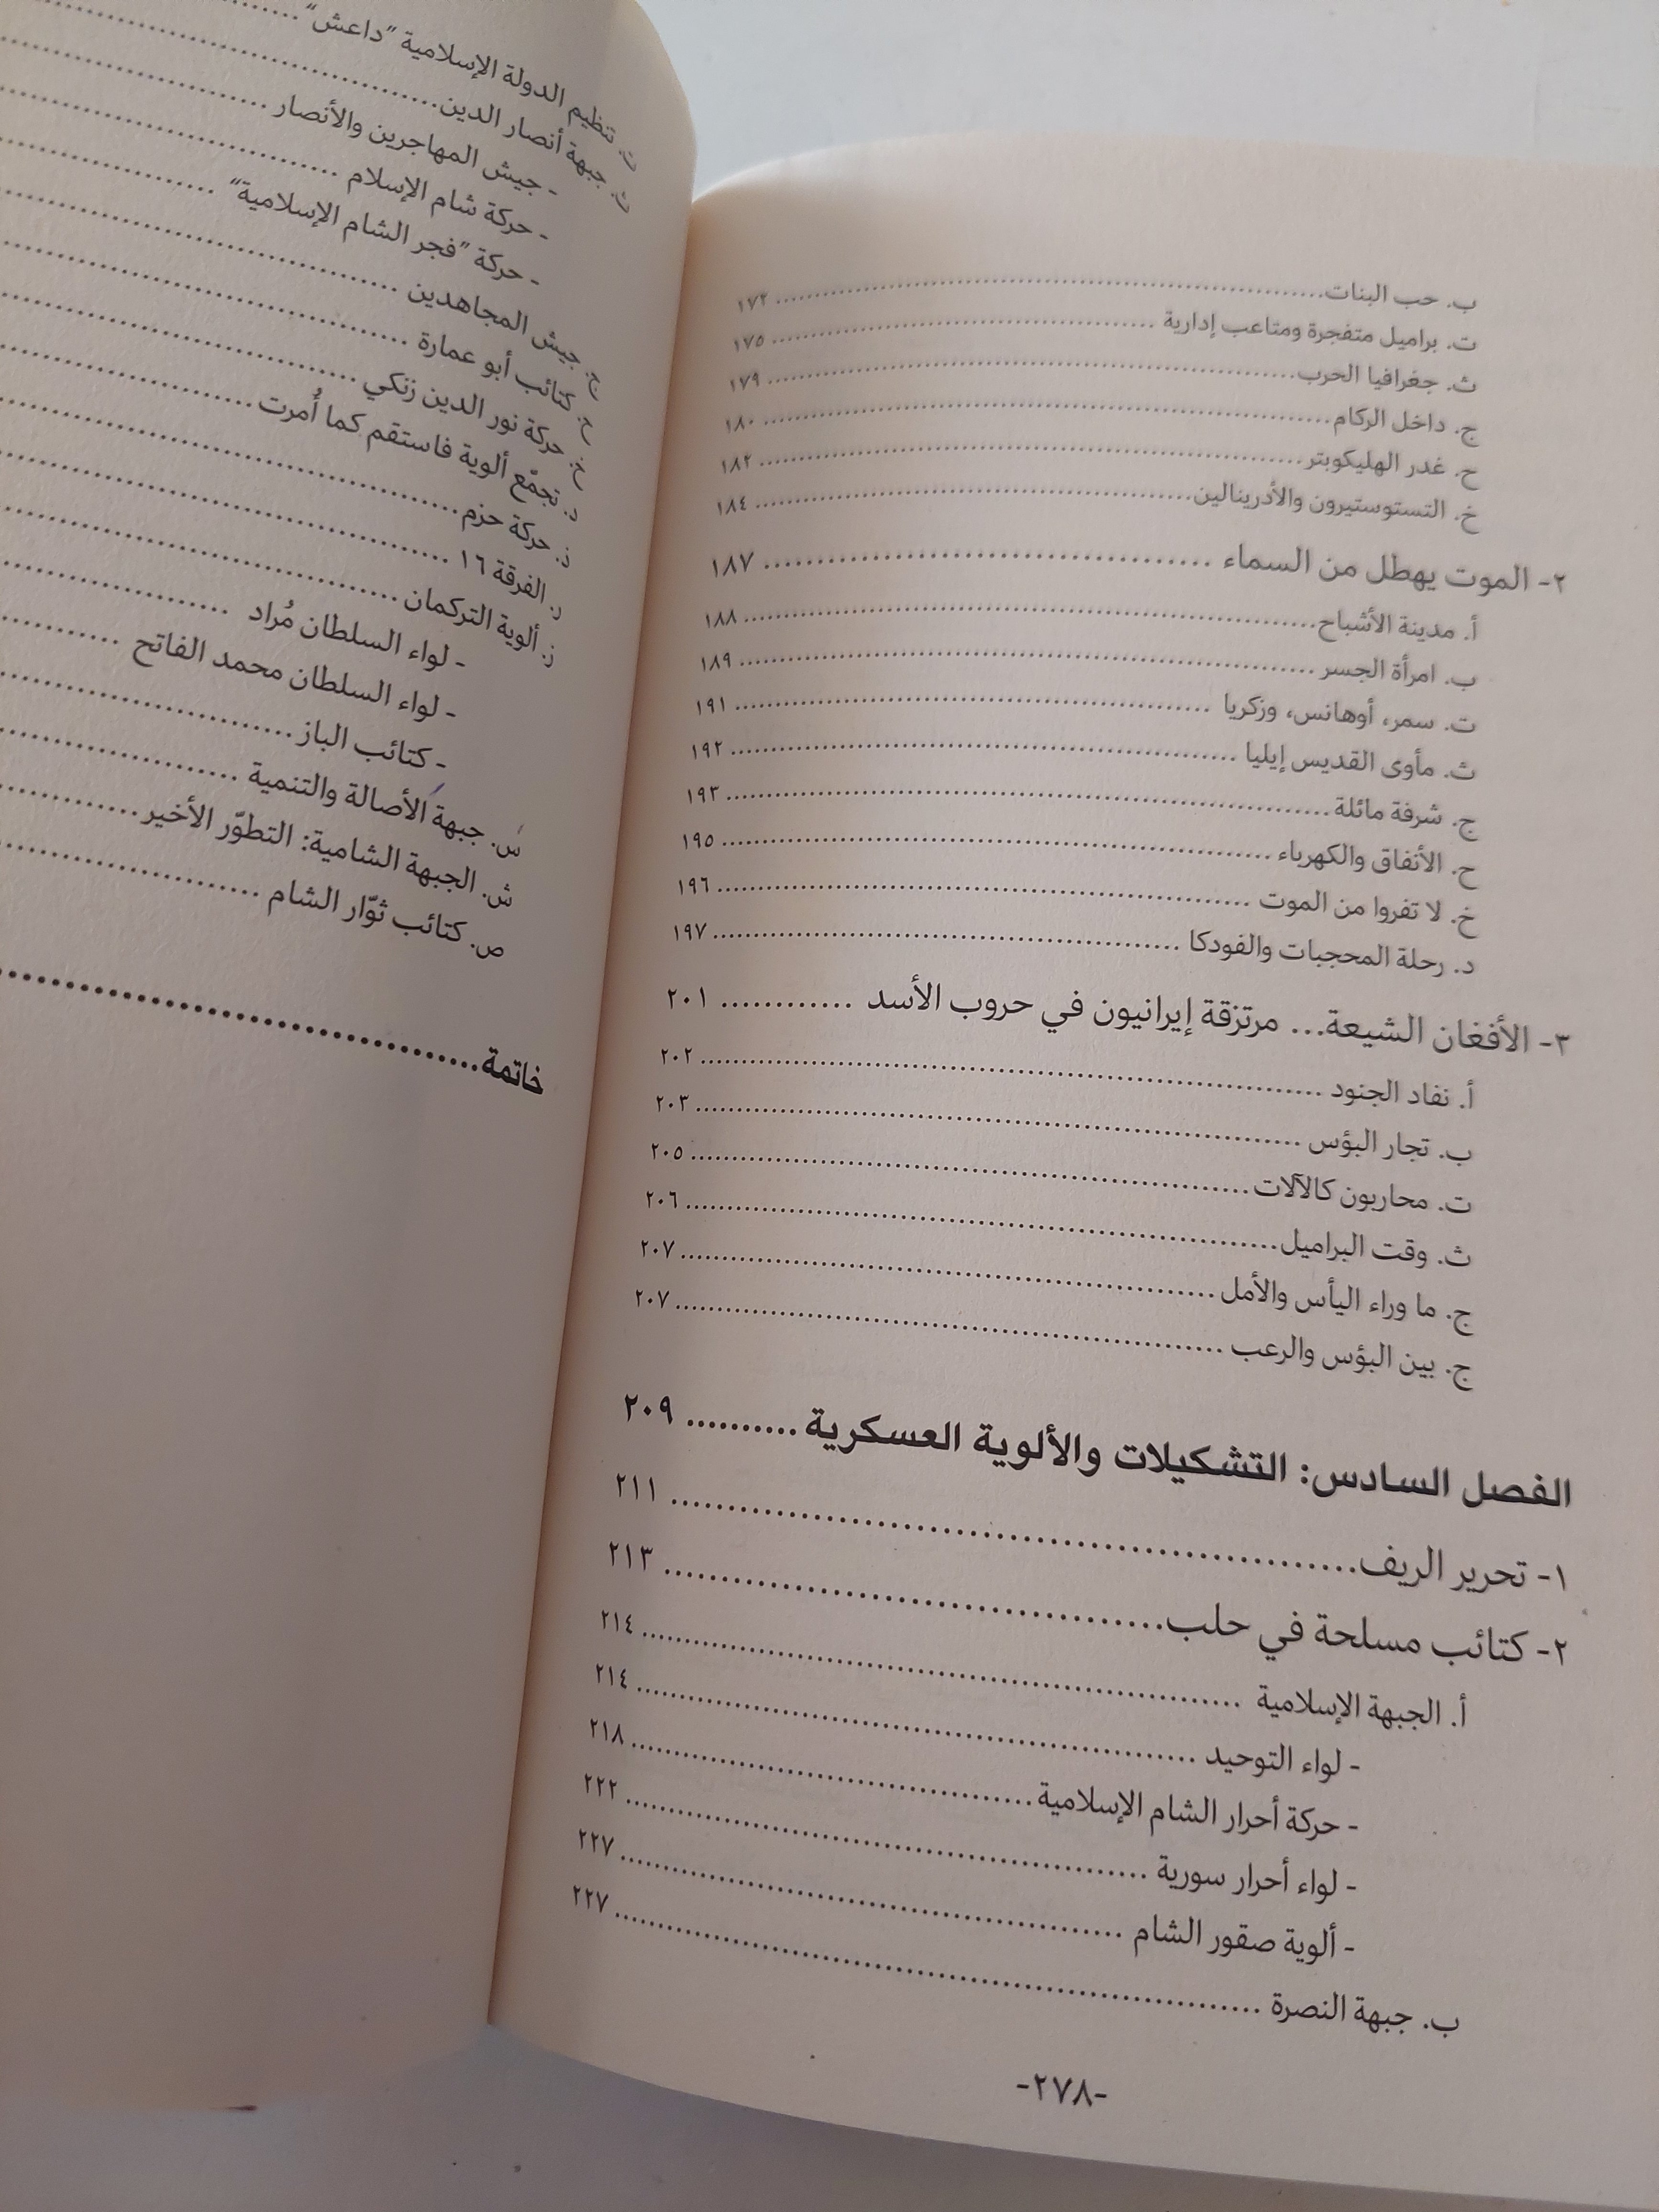 ب. حب البنات ........ ١٧٢
ت. براميل متفجرة ومتاعب إدارية ........ ١٧٥
ث. جغرافيا الحرب ........ ١٧٩
ج. داخل الركام ........ ١٨٠
ح. غدر الهليكوبتر ........ ١٨٢
خ. التستوستيرون والأدرينالين ........ ١٨٤
٢- الموت يهطل من السماء ........ ١٨٧
أ. مدينة الأشباح ........ ١٨٨
ب. امرأة الجسر ........ ١٨٩
ت. سمر، أوهانس، وزكريا ........ ١٩١
ث. مأوى القديس إيليا ........ ١٩٢
ج. شرفة مائلة ........ ١٩٣
ح. الأنفاق والكهرباء ........ ١٩٥
خ. لا تفروا من الموت ........ ١٩٦
د. رحلة المحجبات والفودكا ........ ١٩٧
٣- الأفغان الشيعة... مرتزقة إيرانيون في حروب الأسد ........ ٢٠١
أ. نفاد الجنود ........ ٢٠٢
ب. تجار البؤس ........ ٢٠٣
ت. محاربون كالآلات ........ ٢٠٥
ث. وقت البراميل ........ ٢٠٦
ج. ما وراء اليأس والأمل ........ ٢٠٧
ج. بين البؤس والرعب ........ ٢٠٧
الفصل السادس: التشكيلات والألوية العسكرية ........ ٢٠٩
١- تحرير الريف ........ ٢١١
٢- كتائب مسلحة في حلب ........ ٢١٣
أ. الجبهة الإسلامية ........ ٢١٤
- لواء التوحيد ........ ٢١٤
- حركة أحرار الشام الإسلامية ........ ٢١٨
- لواء أحرار سورية ........ ٢٢٢
- ألوية صقور الشام ........ ٢٢٧
ب. جبهة النصرة ........ ٢٢٧
-٢٧٨-
ت. تنظيم الدولة الإسلامية "داعش" ........
ث. جبهة أنصار الدين ........
- جيش المهاجرين والأنصار ........
- حركة شام الإسلام ........
- حركة "فجر الشام الإسلامية" ........
ج. جيش المجاهدين ........
ح. كتائب أبو عمارة ........
خ. حركة نور الدين زنكي ........
د. تجمّع ألوية فاستقم كما أُمرت ........
ذ. حركة حزم ........
ر. الفرقة ١٦ ........
ز. ألوية التركمان ........
- لواء السلطان مُراد ........
- لواء السلطان محمد الفاتح ........
- كتائب الباز ........
س. جبهة الأصالة والتنمية ........
ش. الجبهة الشامية: التطوّر الأخير ........
ص. كتائب ثوّار الشام ........
خاتمة ........